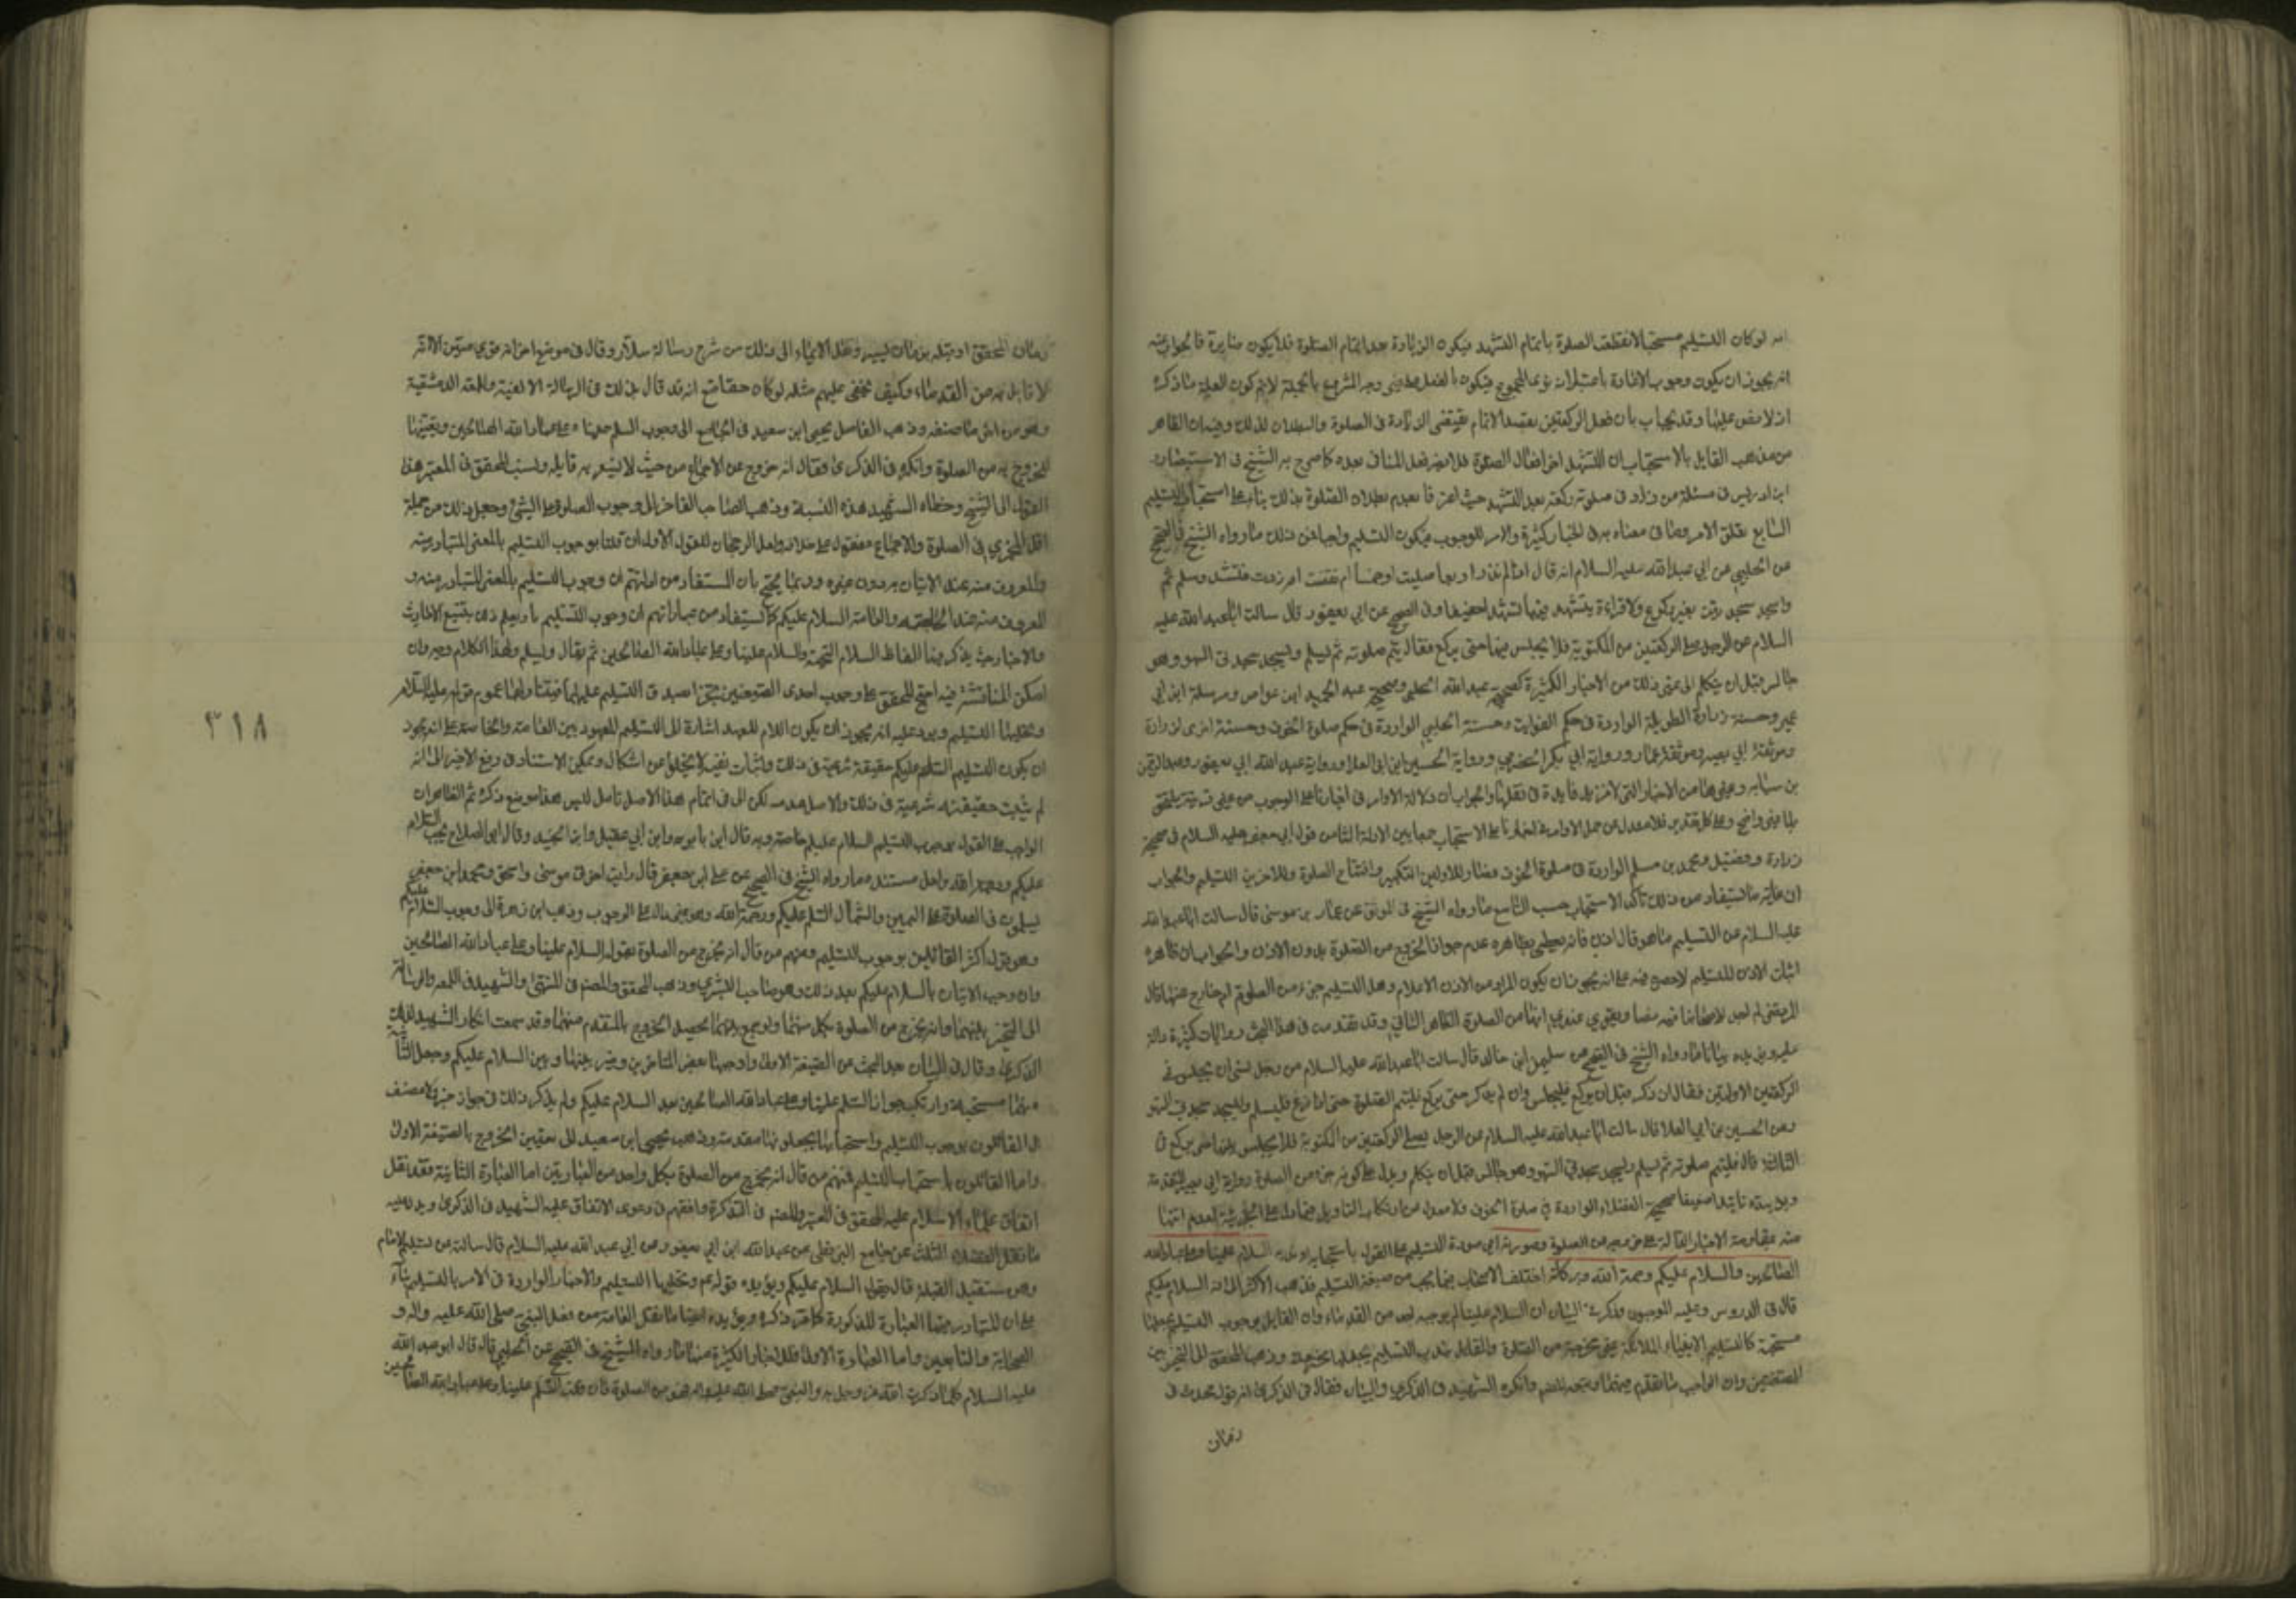 انه لو كان التسليم مستحبا لانقطعت الصلوة باتمام التشهد فيكون الزيادة بعد اتمام الصلوة فلا يكون
انه يجوز ان يكون وجوب الاعادة باعتبار
وقد يجاب بان فعل الركعتين بقصد الاتمام يقتضي الزيادة في الصلوة والبطلان لذلك
من مذهب القايل بالاستحباب ان التشهد اخر افعال الصلوة فلا يضر فعل المنافي بعده كما صرح به الشيخ في الاستبصار
ابن ادريس في مسئلة من زاد في صلوته ركعة بعد التشهد حيث اعترفا بعدم بطلان الصلوة بذلك بناء على استحباب التسليم
السابع تعلق الامر وما في معناه به في اخبار كثيرة والامر للوجوب فيكون التسليم واجبا فمن ذلك ما رواه الشيخ في الصحيح
عن الحلبي عن ابي عبد الله عليه السلام انه قال اذا لم تدر اربعا صليت او خمسا ام نقصت ام زدت فتشهد وسلم ثم
واسجد سجدتين بغير ركوع ولا قراءة يتشهد فيهما تشهدا خفيفا وفي الصحيح عن ابي يعفور قال سالت ابا عبد الله عليه
السلام عن الرجل يصلي الركعتين من المكتوبة فلا يجلس فيهما حتى يركع فقال يتم صلوته ثم يسلم ويسجد سجدتي السهو وهو
جالس قبل ان يتكلم الى غير ذلك من الاخبار الكثيرة كصحيحة عبد الله الحلبي وصحيح عبد الحميد ابن عواض ومرسلة ابن ابي
عمير وحسنة زرارة الطويلة الواردة في حكم الفوايت وحسنة الحلبي الواردة في حكم صلوة الخوف وحسنة اخرى لزرارة
وموثقة ابي بصير وموثقة عمار ورواية ابي بكر الحضرمي ورواية الحسين ابن ابي العلا ورواية عبد الله ابن ابي يعفور
بن سيابه وغيرها من الاخبار التي لا مزيد فايدة في نقلها والجواب ان دلالة الاوامر في اخبارنا على الوجوب من غير قرينة
واضح وعلى كل تقدير فلا معدل عن حمل الاوامر في اخبارنا على الاستحباب جمعا بين الادلة الثامن قول ابي جعفر عليه السلام في صحيحة
زرارة وفضيل ومحمد بن مسلم الواردة في صلوة الخوف فصار للاولين التكبير وافتتاح الصلوة وللاخرين التسليم والجواب
ان غاية ما يستفاد من ذلك تاكد الاستحباب حسب التاسع ما رواه الشيخ في الموثق عن عمار بن موسى قال سالت ابا عبد الله
عليه السلام عن التسليم ما هو قال اذن فانه يعطي بظاهره عدم جواز الخروج من الصلوة بدون الاذن والجواب ان ظاهره
اثبات الاذن للتسليم لا حصر فيه على انه يجوز ان يكون المراد من الاذن الاعلام وهل التسليم جزء من الصلوة ام خارج عنها قال
المرتضى لم اجد لاصحابنا فيه نصا ويقوى عندي انها من الصلوة الظاهر الثاني وقد تقدمت في هذا البحث روايات كثيرة دالة
عليه ويزيده بيانا ما رواه الشيخ في الصحيح عن سليمن ابن خالد قال سالت ابا عبد الله عليه السلام عن رجل نسي ان يجلس في
الركعتين الاولتين فقال ان ذكر قبل ان يركع فليجلس وان لم يذكر حتى يركع فليتم الصلوة حتى اذا فرغ فليسلم وليسجد سجدتي السهو
وعن الحسين بن ابي العلا قال سالت ابا عبد الله عليه السلام عن الرجل يصلي الركعتين من المكتوبة فلا يجلس بينهما حتى يركع في
الثالثة قال فليتم صلوته ثم يسلم ويسجد سجدتي السهو وهو جالس قبل ان يتكلم ويدل على كونه جزءا من الصلوة رواية ابي بصير المتقدمة
ويؤيده تاييدا ضعيفا صحيحة الفضلاء الواردة في صلوة الخوف ولا معدل عن ارتكاب التاويل
السلام علينا وعلى عباد الله
الصالحين والسلام عليكم ورحمة الله وبركاته اختلف الاصحاب فيما يجب من صيغة التسليم فذهب الاكثر الى انه السلام عليكم
قال في الدروس وعليه الموجبون وذكر في البيان ان السلام علينا لم يوجبه احد من القدماء وان القايل بوجوب التسليم يجعلها
مستحبة كالتسليم على الانبياء والملائكة غير مخرجة من الصلوة والقايل بندب التسليم يجعلها مخرجة وذهب المحقق الى التخيير بين
الصيغتين وان الواجب ما تقدم منهما وتبعه المصنف وانكره الشهيد في الذكرى والبيان فقال في الذكرى انه قول محدث في
زمان
زمان المحقق او قبله بزمان يسير ونقل الايماء الى ذلك من شرح رسالة سلار وقال في موضع اخر انه قوي متين الا انه
لا قايل به من القدماء وكيف يخفى عليهم مثله لو كان حقا مع انه قد قال بذلك في الرسالة الالفية واللمعة الدمشقية
وهو من اخر ما صنفه وذهب الفاضل يحيى ابن سعيد في الجامع الى وجوب السلام علينا وعلى عباد الله الصالحين وتعيينها
للخروج به من الصلوة وانكره في الذكرى فقال انه خروج عن الاجماع من حيث لا يشعر به قايله ونسب المحقق في المعتبر هذا
القول الى الشيخ وخطاه الشهيد هذه النسبة وذهب صاحب الفاخر الى وجوب الصلوة على النبي وجعل ذلك من جملة
اقل المجزي في الصلوة والاجماع منقول على خلافه ولعل الرجحان للقول الاول ان قلنا بوجوب التسليم بالمعنى المتبادر منه
والمعروف منه عند الخاصة والعامة السلام عليكم كما يستفاد من عباراتهم
والاخبار حيث يذكر فيها الفاظ السلام التحية والسلام علينا وعلى عباد الله الصالحين ثم يقال ويسلم ولهذا الكلام وجه وان
امكن المناقشة فيه احتج المحقق على وجوب احدى الصيغتين تخييرا بصدق التسليم عليهما
وتحليلها التسليم ويرد عليه انه يجوز ان يكون اللام للعهد اشارة الى التسليم المعهود بين العامة والخاصة على انه يجوز
ان يكون التسليم السلام عليكم حقيقة شرعية في ذلك واثبات نفيه لا يخلو عن اشكال ويمكن الاستناد في رفع الاخير الى انه
لم يثبت حقيقة شرعية في ذلك والاصل عدمه لكن لي في اتمام هذا الاصل تامل ليس هذا موضع ذكره ثم الظاهر ان
الواجب على القول بوجوب التسليم السلام عليكم خاصة وبه قال ابن بابويه وابن ابي عقيل وابن الجنيد وقال ابو الصلاح يجب السلام
عليكم ورحمة الله ولعل مستنده ما رواه الشيخ في الصحيح عن علي ابن جعفر قال رايت اخوتي موسى واسحق ومحمد ابن جعفر
يسلمون في الصلوة على اليمين والشمال السلام عليكم ورحمة الله وهو غير دال على الوجوب وذهب ابن زهرة الى وجوب السلام عليكم
وهو قول اكثر القائلين بوجوب التسليم ومنهم من قال انه يخرج من الصلوة بقوله السلام علينا وعلى عباد الله الصالحين
وان وجب الاتيان بالسلام عليكم بعد ذلك وهو صاحب البشرى وذهب المحقق والمصنف في المنتهى والشهيد في اللمعة والرسالة
الى التخيير بينهما وانه يخرج من الصلوة بكل منهما ولو جمع بينهما يحصل الخروج بالمتقدم منهما وقد سمعت انكار الشهيد لذلك في
الذكرى وقال في البيان بعد البحث عن الصيغة الاولى واوجبها بعض المتاخرين وخير بينها وبين السلام عليكم وجعل الثانية
منهما مستحبة وارتكب جواز السلام علينا وعلى عباد الله الصالحين بعد السلام عليكم ولم يذكر ذلك في خبر ولا مصنف
بل القائلون بوجوب التسليم واستحبابه يجعلونها مقدمة وذهب يحيى ابن سعيد الى تعيين الخروج بالصيغة الاولى
واما القائلون باستحباب التسليم فمنهم من قال انه يخرج من الصلوة بكل واحد من العبارتين اما العبارة الثانية فقد نقل
اتفاق علماء الاسلام عليه المحقق في المعتبر والمصنف في التذكرة وافقهم في دعوى الاتفاق عليه الشهيد في الذكرى ويدل عليه
ما نقل الفضلاء الثلث عن جامع البزنطي عن عبد الله ابن ابي يعفور عن ابي عبد الله عليه السلام قال سالته عن تسليم الامام
وهو مستقبل القبلة قال يقول السلام عليكم ويؤيده قولهم وتحليلها التسليم والاخبار الواردة في الامر بالتسليم بناء
على ان المتبادر منها العبارة المذكورة كما مر ذكره ويؤيده ايضا ما نقل العامة من فعل النبي صلى الله عليه واله و
الصحابة والتابعين واما العبارة الاولى فللاخبار الكثيرة منها ما رواه الشيخ في الصحيح عن الحلبي قال قال ابو عبد الله
عليه السلام كلما ذكرت الله عز وجل به والنبي صلى الله عليه واله فهو من الصلوة فان قلت السلام علينا وعلى عباد الله الصالحين
٣١٨